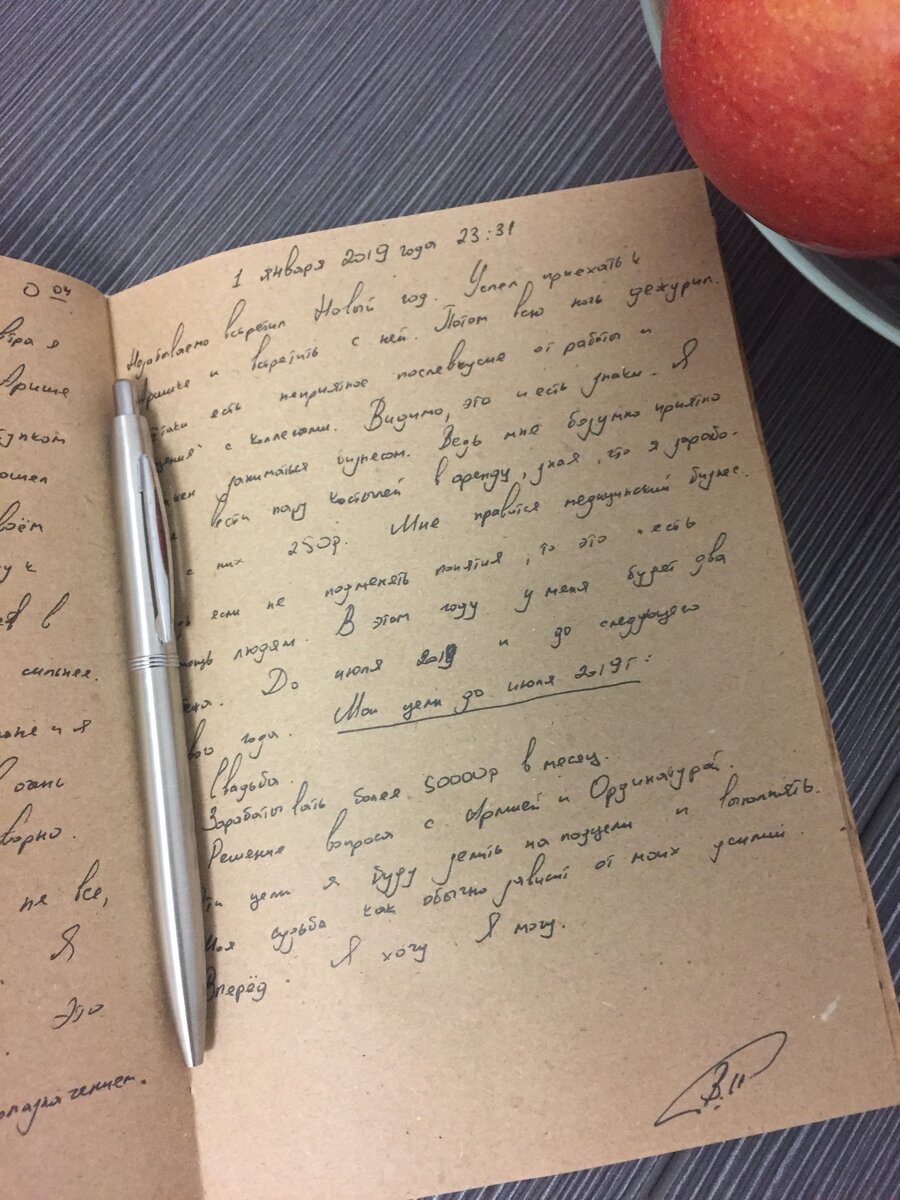 0 04
я
Арише
сильнее.
и я
очень
не все,
Я
Это
1 января 2019 года 23:31
Незабываемо встретил Новый год. Успел приехать к
Аришке и встретить с ней. Потом всю ночь дежурил.
таки есть неприятное послевкусие от работы и
с коллегами. Видимо, это и есть знаки. Я
заниматься бизнесом. Ведь мне безумно приятно
пару костылей в аренду, зная, что я зарабо-
с них 250р. Мне нравится медицинский бизнес.
если не подменять понятия, то это и есть
людям. В этом году у меня будет два
До июля 2019 и до следующего
года. Мои цели до июля 2019г:
Свадьба.
Зарабатывать более 50000р в месяц.
Решение вопроса с Армией и Ординатурой.
цели я буду делить на подцели и выполнять.
Моя судьба как обычно зависит от моих усилий.
Вперёд Я хочу. Я могу.
В.П